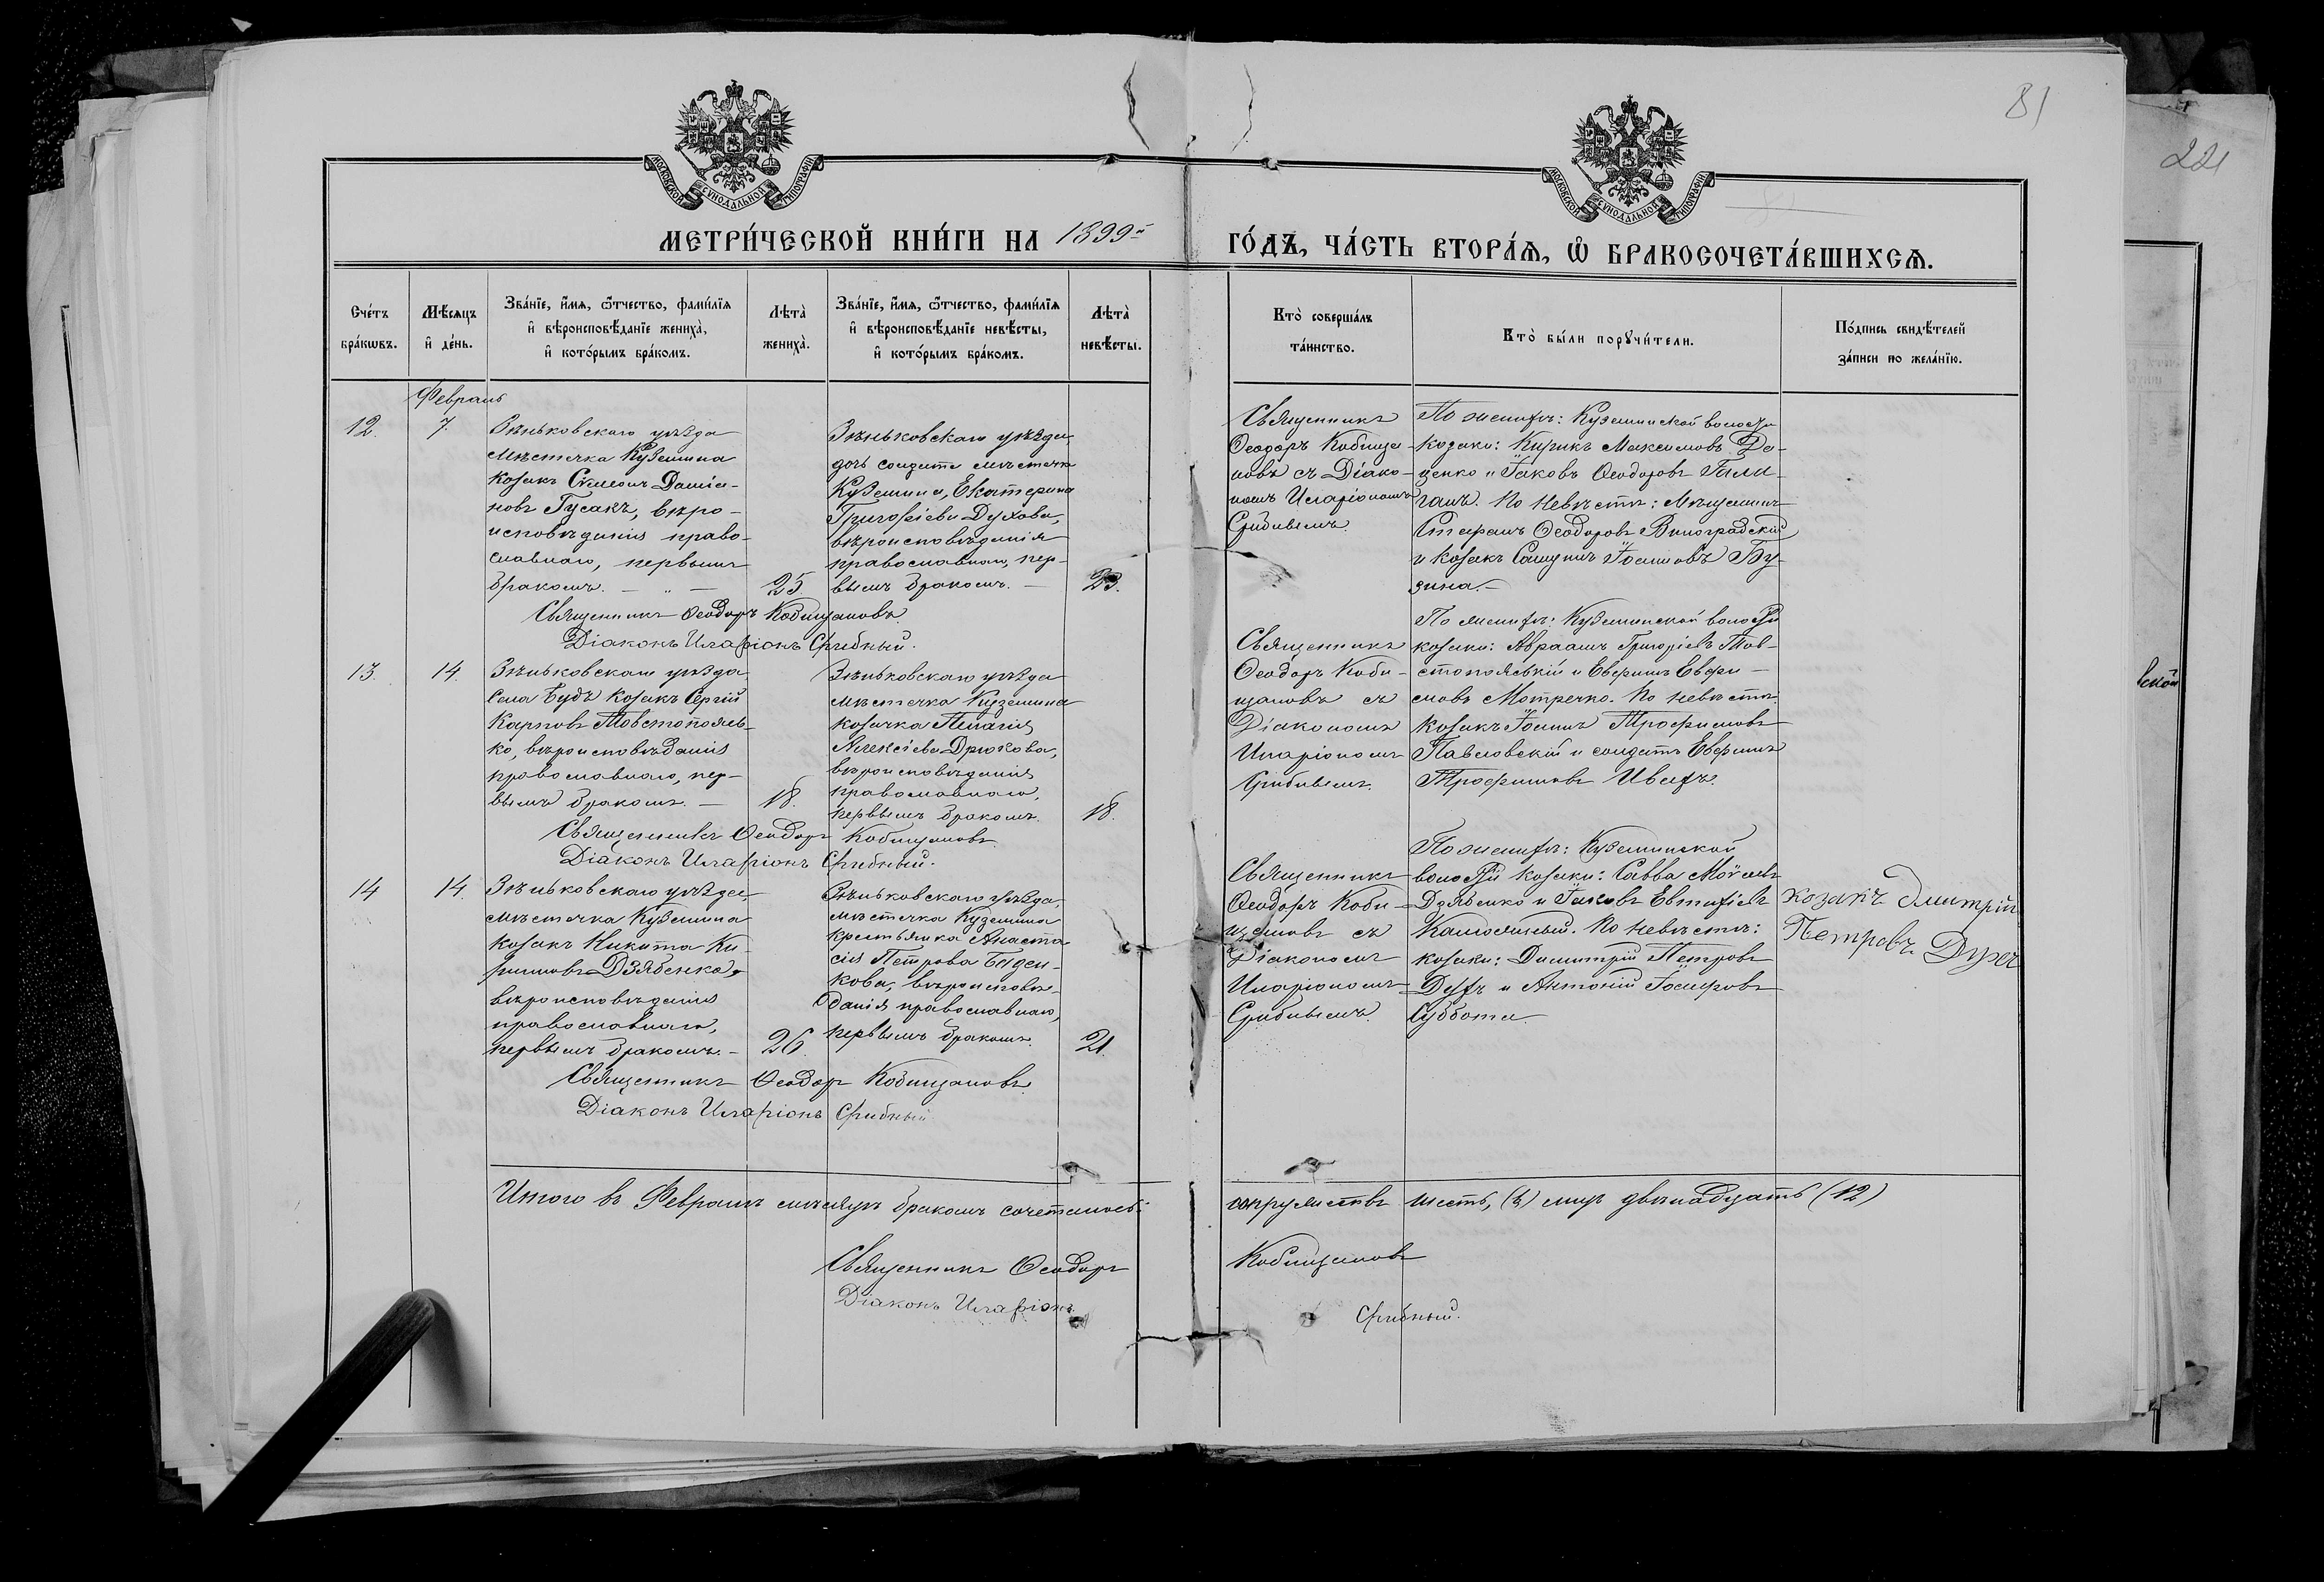 81
221
МОСКОВСКОЙ СѴНОДАЛЬНОЙ ТИПОГРАФІИ
МОСКОВСКОЙ СѴНОДАЛЬНОЙ ТИПОГРАФІИ
МЕТРИ́ЧЕСКОЙ КНИ́ГИ НА 1899й ГО́ДЪ, ЧА́СТЬ ВТОРА́Ѧ, Ѽ БРАКОСОЧЕТА́ВШИХСѦ.
Сче́тъ
бра́кѡвъ.
Мѣ́сѧцъ
и҆ де́нь.
Зва́нїе, и҆́мѧ, ѻ҆́тчество, фами́лїѧ
и҆ вѣроисповѣ́данїе жениха̀,
и҆ кото́рымъ бра́комъ.
Лѣта̀
жениха̀.
Зва́нїе, и҆́мѧ, ѻ҆́тчество, фами́лїѧ
и҆ вѣроисповѣ́данїе невѣ́сты,
и҆ кото́рымъ бра́комъ.
Лѣта̀
невѣ́сты.
Кто̀ соверша́лъ
та́инство.
Кто̀ бы́ли порꙋчи́тели.
По́дпись свидѣ́телей
за́писи по жела́нїю.
Февраль
12.
7.
Зѣньковскаго уѣзда
мѣстечка Куземина
козакъ Симеонъ Даміа-
новъ Гусакъ, вѣро-
исповѣданія право-
славнаго, первымъ
бракомъ. — „ —
25.
Зѣньковскаго уѣзда,
дочь солдата мѣстечка
Куземина, Екатерина
Григоріева Духова,
вѣроисповѣданія
православнаго, пер-
вымъ бракомъ. —
23.
Священникъ
Ѳеодоръ Кобища-
новъ съ Діако-
номъ Иларіономъ
Срибнымъ.
По женихѣ: Куземинской волости
козаки: Кирикъ Максимовъ До-
ценко и Іаковъ Ѳеодоровъ Гали-
ганъ. По невѣстѣ: мѣщанинъ
Стефанъ Ѳеодоровъ Виноградскій
и козакъ Самуилъ Іоанновъ Бу-
зина. —
Священникъ Ѳеодоръ Кобищановъ.
Діаконъ Иларіонъ Срибный.
13.
14.
Зѣньковскаго уѣзда
села Будъ козакъ Сергій
Карповъ Товстополь-
ко, вѣроисповѣданія
православнаго, пер-
вымъ бракомъ. —
18.
Зѣньковскаго уѣзда
мѣстечка Куземина
козачка Пелагія
Алексіева Дрюкова,
вѣроисповѣданія
православнаго,
первымъ бракомъ.
18.
Священникъ
Ѳеодоръ Коби-
щановъ съ
Діакономъ
Иларіономъ
Срибнымъ.
По женихѣ: Куземинской волости
козаки: Авраамъ Григоріевъ Тов-
стопятскій и Евфимъ Евфи-
мовъ Мотречко. По невѣстѣ:
козакъ Іоаннъ Трофимовъ
Павловскій и солдатъ Евфимъ
Трофимовъ Ивахъ.
Священникъ Ѳеодоръ Кобищановъ.
Діаконъ Иларіонъ Срибный.
14
14.
Зѣньковскаго уѣзда,
мѣстечка Куземина
козакъ Никита Ки-
рилловъ Дзябенко,
вѣроисповѣданія
православнаго,
первымъ бракомъ. —
26.
Зѣньковскаго уѣзда,
мѣстечка Куземина
крестьянка Анаста-
сія Петрова Биден-
кова, вѣроисповѣ-
данія православнаго,
первымъ бракомъ.
21.
Священникъ
Ѳеодоръ Коби-
щановъ съ
Діакономъ
Иларіономъ
Срибнымъ.
По женихѣ: Куземинской
волости козаки: Савва
Дзябенко и Іаковъ Евтихіевъ
По невѣстѣ:
козаки: Димитрій Петровъ
Духъ и Антоній Іосифовъ
Суббота.
козакъ Дмитрій
Петровъ Духъ
Священникъ Ѳеодоръ Кобищановъ.
Діаконъ Иларіонъ Срибный.
Итого въ Февралѣ мѣсяцѣ бракомъ сочеталось супружествъ шесть, (6) лицъ двѣнадцать (12)
Священникъ Ѳеодоръ Кобищановъ
Діаконъ Иларіонъ Срибный.